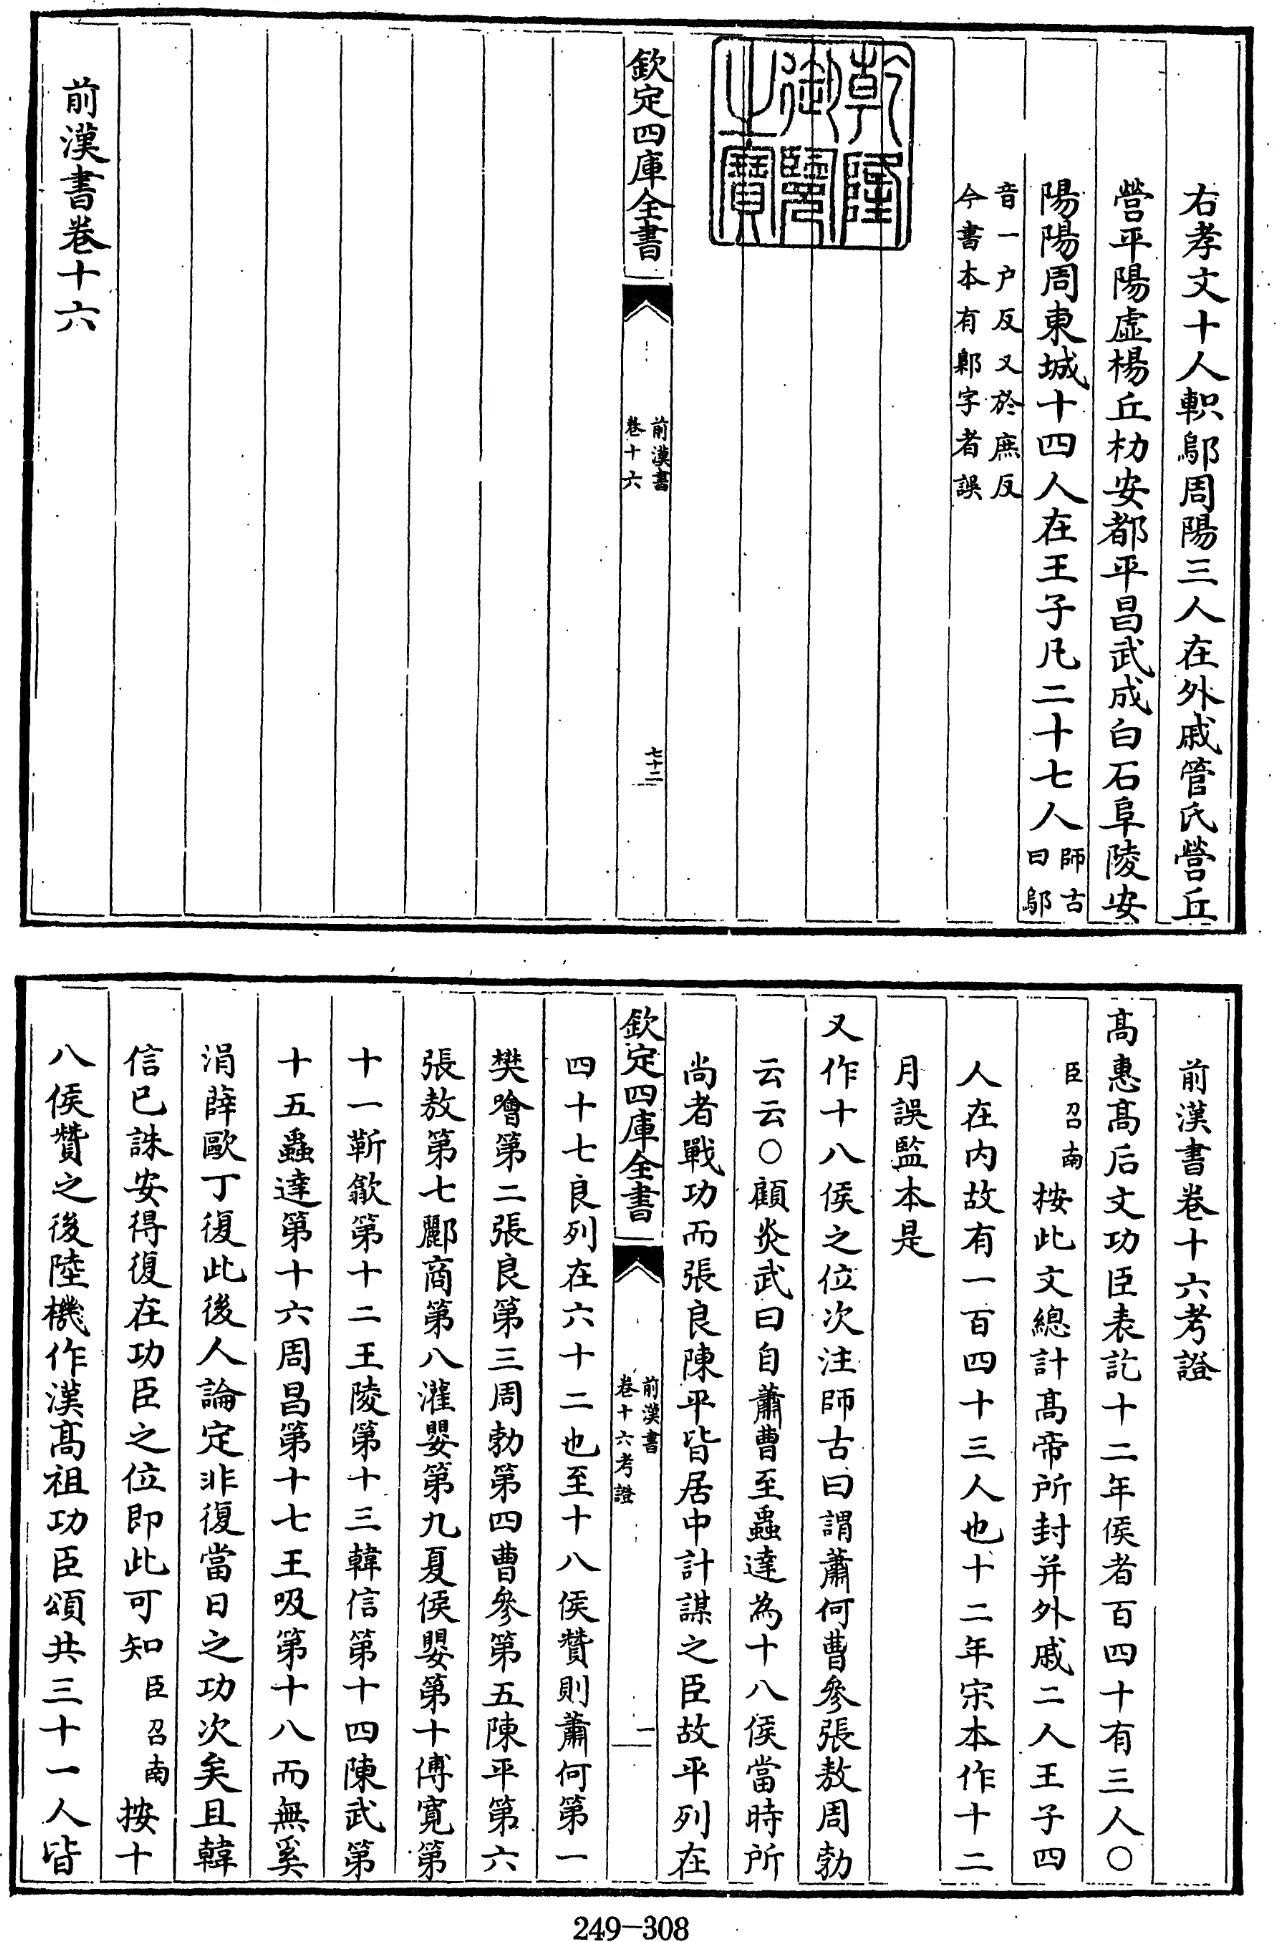 右孝文十人軹鄔周陽三人在外戚管氏營丘
營平陽虛楊丘朸安都平昌武成白石阜陵安
陽陽周東城十四人在王子凡二十七人師古曰鄔
音一户反又於庶反
今書本有鄡字者誤
乾隆御覽之寶
欽定四庫全書
前漢書
卷十六
七十二
前漢書卷十六
前漢書卷十六考證
高惠高后文功臣表訖十二年侯者百四十有三人○
臣召南按此文總計高帝所封并外戚二人王子四
人在内故有一百四十三人也十二年宋本作十二
月誤監本是
又作十八侯之位次注師古曰謂蕭何曹參張敖周勃
云云○顧炎武曰自蕭曹至蟲達為十八侯當時所
尚者戰功而張良陳平皆居中計謀之臣故平列在
欽定四庫全書
前漢書
卷十六考證
一
四十七良列在六十二也至十八侯贊則蕭何第一
樊噲第二張良第三周勃第四曹參第五陳平第六
張敖第七酈商第八灌嬰第九夏侯嬰第十傅寛第
十一靳歙第十二王陵第十三韓信第十四陳武第
十五蟲達第十六周昌第十七王吸第十八而無奚
涓薛歐丁復此後人論定非復當日之功次矣且韓
信已誅安得復在功臣之位即此可知臣召南按十
八侯贊之後陸機作漢高祖功臣頌共三十一人皆
249-308